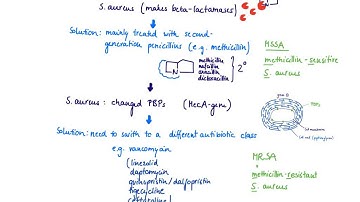 S. aureus (makes beta-lactamases)
Solution: mainly treated with second-
generation penicillins (e.g. methicillin)
methicillin
nafcillin
oxacillin
dicloxacillin
2°
N
MSSA
methicillin-sensitive
S. aureus
S. aureus: changed PBPs (MecA-gene)
Solution: need to swith to a different antibiotic class
e.g. vancomycin
(linezolid
daptomycin
quinupristin/dalfopristin
tigecycline
MRSA
methicillin-resistant
S. aureus